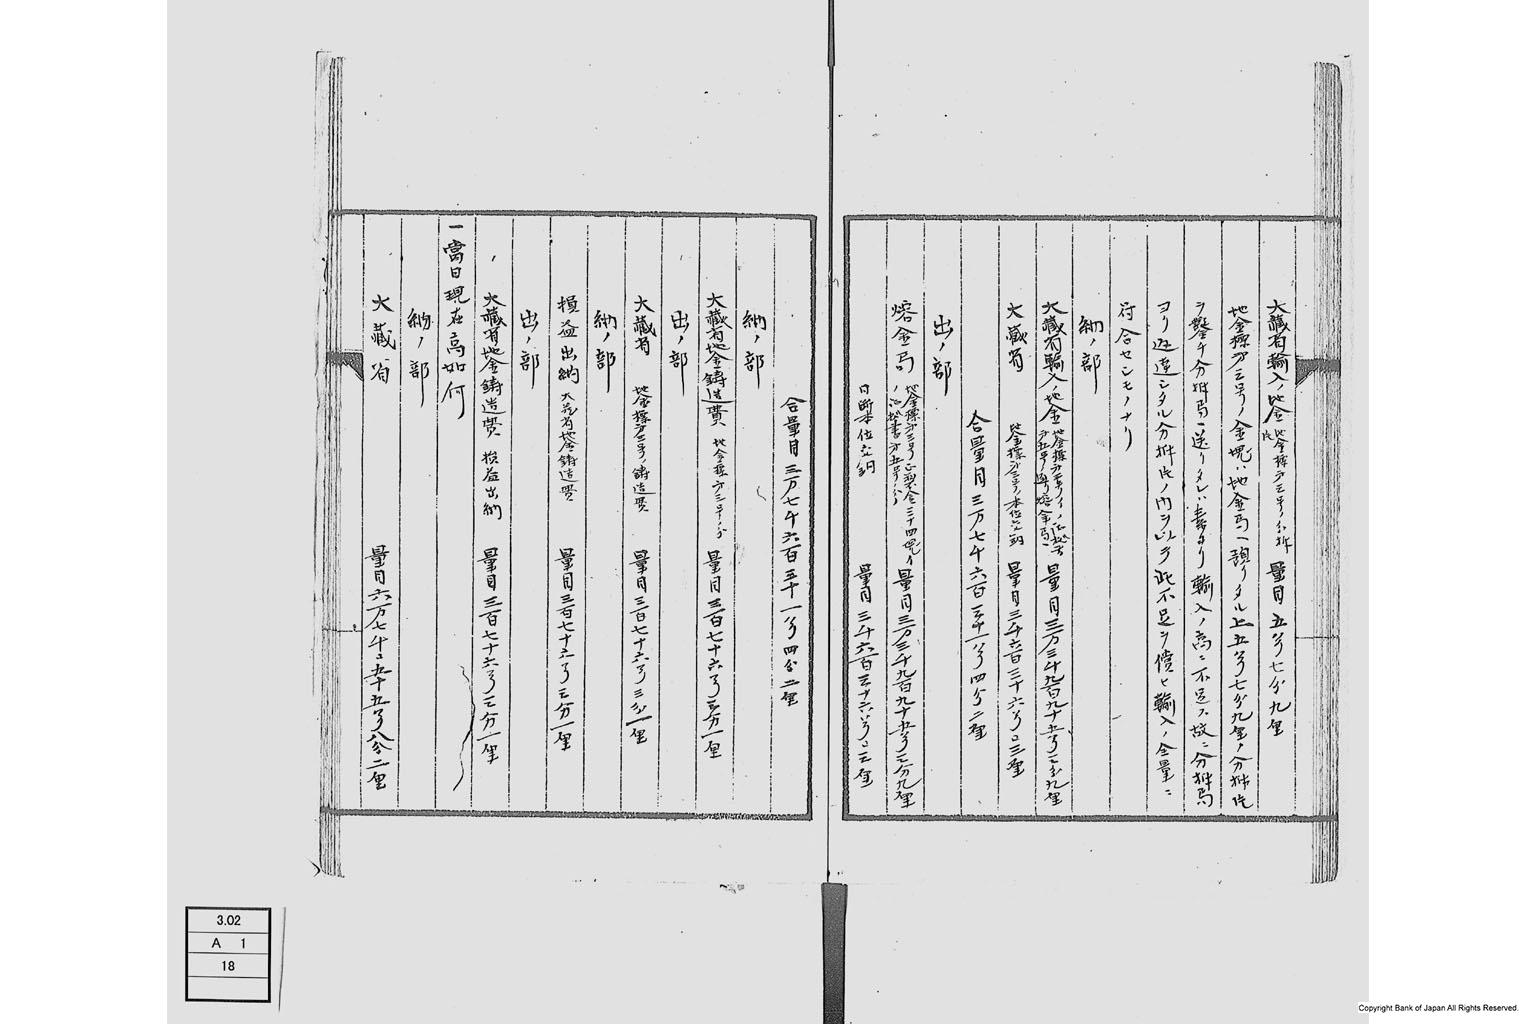 大蔵省輸入ノ地金 地金標方三号ノ分拆片 量目五匁七分九厘
地金標方三号ノ金塊ハ地金局ヘ預リタル上五匁七分九厘ノ分拆片
ヲ鑿チ分拆局ヘ送リタレハ素ヨリ輸入ノ高ニ不足ス故ニ分拆局
ヨリ返還シタル分拆片ノ内ヲ以テ此不足ヲ償ヒ輸入ノ全量ニ
符合セシモノナリ
納ノ部
大蔵省輸入ノ地金 量目三万三千九百九十五匁三分九厘
大蔵省 地金標方三号ノ本位交納 量目三千六百三十六匁〇三厘
合量目三万七千六百三十一匁四分二厘
出ノ部
熔金局 量目三万三千九百九十五匁三分九厘
日晰本位交納 量目三千六百三十六匁〇三厘
合量目三万七千六百三十一匁四分二厘
納ノ部
大蔵省地金鋳造費 地金標方三号ノ分 量目三百七十六匁三分一厘
出ノ部
大蔵省 地金標方三号ノ鋳造費 量目三百七十六匁三分一厘
納ノ部
損益出納 大蔵省地金鋳造費 量目三百七十六匁三分一厘
出ノ部
大蔵省地金鋳造費 損益出納 量目三百七十六匁三分一厘
一當日現在高如何
納ノ部
大蔵省 量目六万七千〇五十五匁八分二厘
3.02
A 1
18
Copyright Bank of Japan All Rights Reserved.